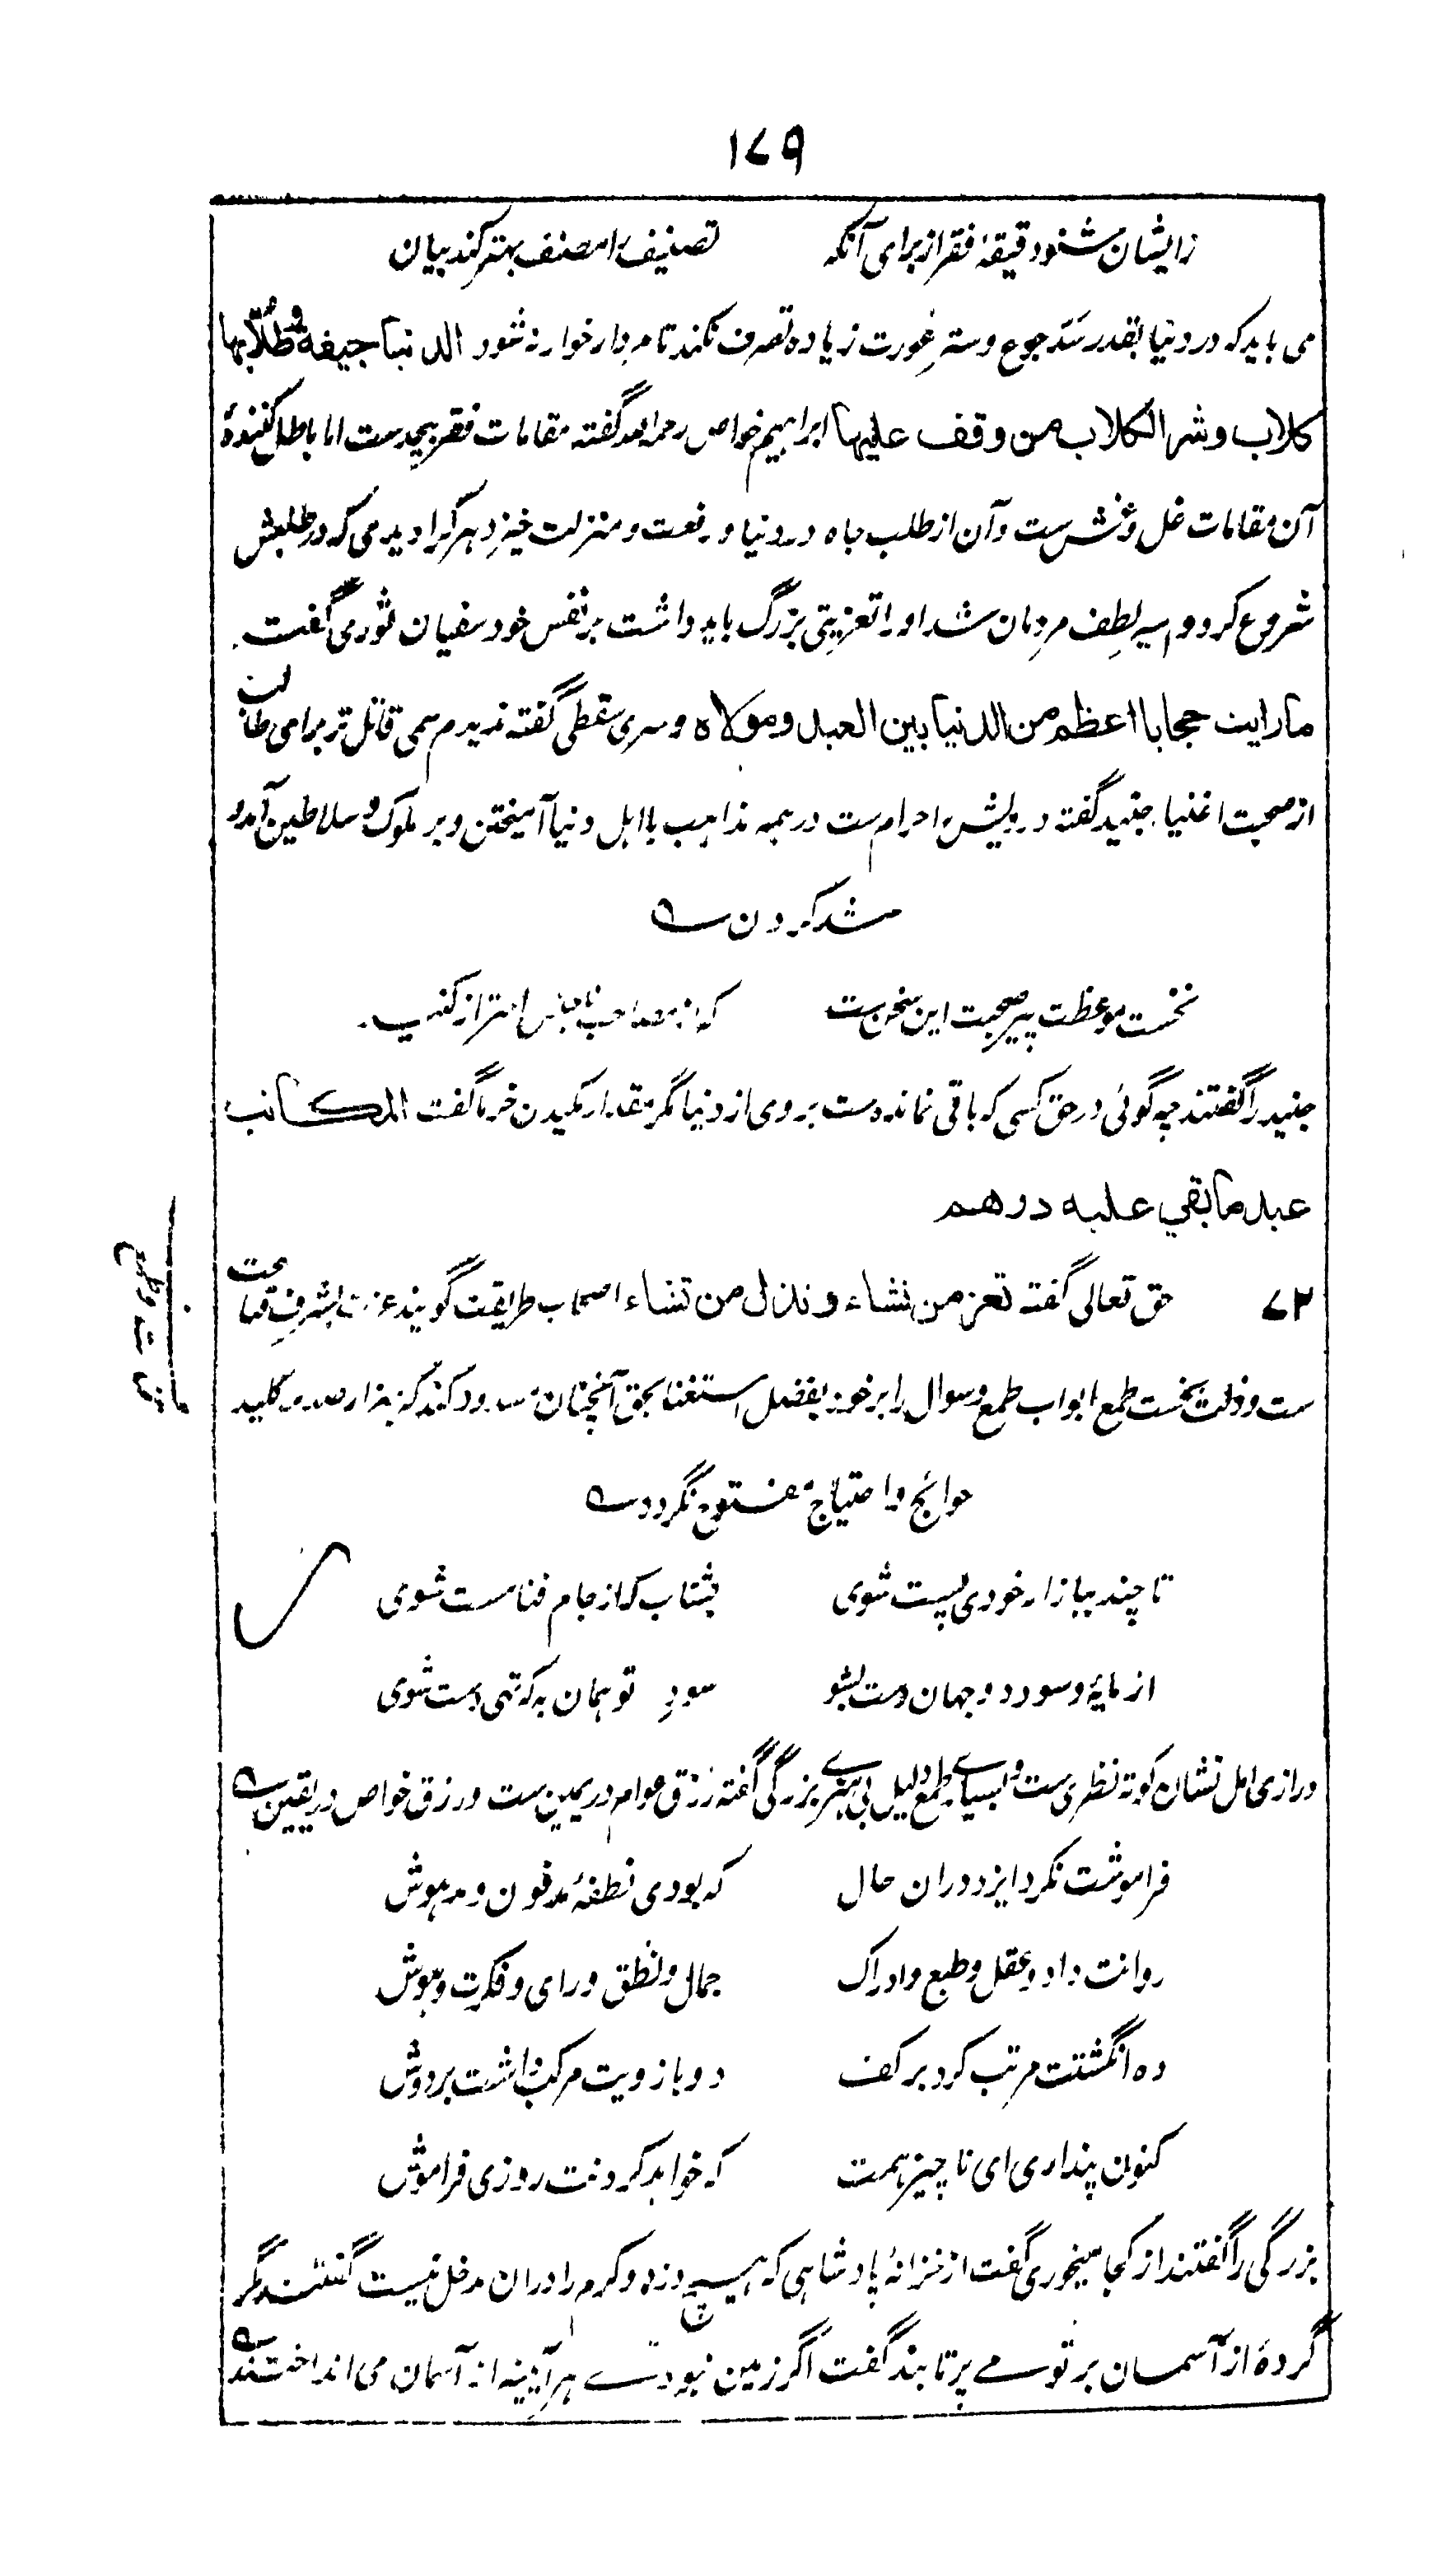 ۱۷۹
زایشان شنو دقیقهٔ فقر از برای آنکه تصنیف را مصنف بهتر کند بیان
می باید که در دنیا بقدر سَدّ جوع و سترِ عورت زیاده تصرف نکند تا مردار خوار نشود الدنیا جیفة و طُلّابها
کلاب و شر الکلاب من وقف علیها ابراهیم خواص رحمه الله گفته مقامات فقر بیحدست اما باطل کنندهٔ
آن مقامات غل و غش ست و آن از طلب جاه در دنیا و رفعت و منزلت خیزد هر کرا دیدمی که در طلبش
شروع کرد و اسیر لطف مردمان شد او را تعزیتی بزرگ باید داشت بر نفس خود سفیان ثوری گفت
ما رایت حجابا اعظم من الدنیا بین العبد و مولاه و سری سقطی گفته ندیدم سمی قاتل تر برای طالبان
از صحبت اغنیا جنید گفته درویش را حرام ست در همه مذاهب با اهل دنیا آمیختن و بر ملوک و سلاطین آمد و
شد کردن
نخست موعظت پیر صحبت این سخن ست که از مصاحب ناجنس احتراز کنید
جنید را گفتند چه گوئی در حق کسی که باقی نمانده ست بروی از دنیا مگر مقدار مکیدن خرما گفت المکاتب
عبد ما بقی علیه درهم
۷۲ حق تعالی گفته تعز من تشاء و تذل من تشاء اصحاب طریقت گویند عزت بشرفِ قناعت
ست و ذلت بخست طمع ابواب طمع و سوال را بر خود بفضل استغنا بحق آنچنان مسدود کند که بهزار صد کلید
حوائج و احتیاج مفتوح نگردد
تا چند ببازار خودی پست شوی بشتاب که از جام فنا مست شوی
از مایهٔ و سود دو جهان دست بشو سودِ تو همان به که تهی دست شوی
درازی امل نشان کوته نظری ست و بسیاری طمع دلیل بی هنری بزرگی گفته رزق عوام در یمین ست و رزق خواص در یقین
فراموشت نکرد ایزد دران حال که بودی نطفهٔ مدفون و مدهوش
روانت داد و عقل و طبع و ادراک جمال و نطق و رای و فکرت و هوش
ده انگشتت مرتب کرد بر کف دو بازویت مرکب داشت بر دوش
کنون پنداری ای ناچیز همت که خواهد کردنت روزی فراموش
بزرگی را گفتند از کجا میخوری گفت از خزانهٔ پادشاهی که هیچ دزد و کرم را در ان مدخل نیست گفتند مگر
گردهٔ از آسمان بر تو می پرتابند گفت اگر زمین نبودے هر آئینه از آسمان می انداختند